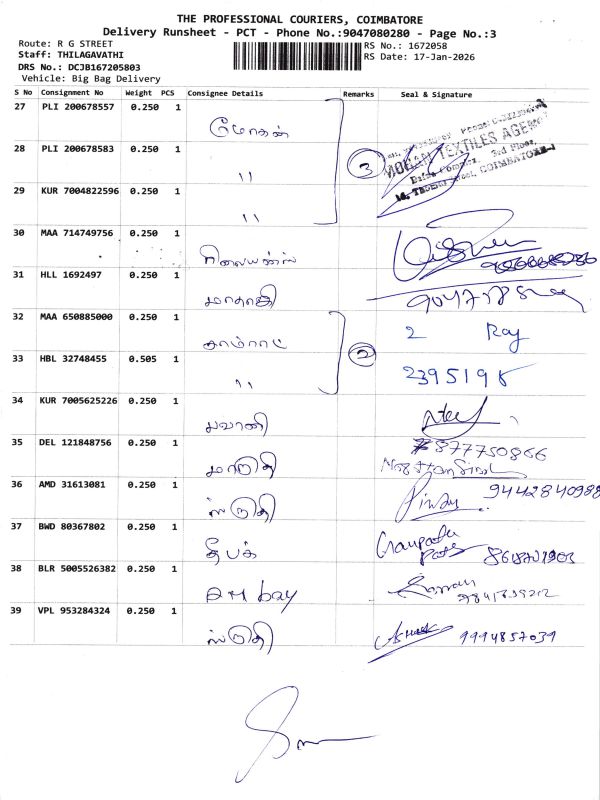 THE PROFESSIONAL COURIERS, COIMBATORE
Delivery Runsheet - PCT - Phone No.:9047080280 - Page No.:3
Route: R G STREET
RS No.: 1672058
Staff: THILAGAVATHI
RS Date: 17-Jan-2026
DRS No.: DCJB167205803
Vehicle: Big Bag Delivery
S No Consignment No Weight PCS Consignee Details Remarks Seal & Signature
27 PLI 200678557 0.250 1 மோகன்
28 PLI 200678583 0.250 1 " 3
MOHAN TEXTILES AGENCY
3rd Floor,
COIMBATORE-1
29 KUR 7004822596 0.250 1 "
30 MAA 714749756 0.250 1
31 HLL 1692497 0.250 1
32 MAA 650885000 0.250 1 2 Roy
33 HBL 32748455 0.505 1 " 2 2395195
34 KUR 7005625226 0.250 1 பவானி
35 DEL 121848756 0.250 1 மாருதி 877750866
36 AMD 31613081 0.250 1 ஸ்ருதி 9442840988
37 BWD 80367802 0.250 1 தீபக் Ganpath
38 BLR 5005526382 0.250 1
39 VPL 953284324 0.250 1 ஸ்ருதி 9994857039